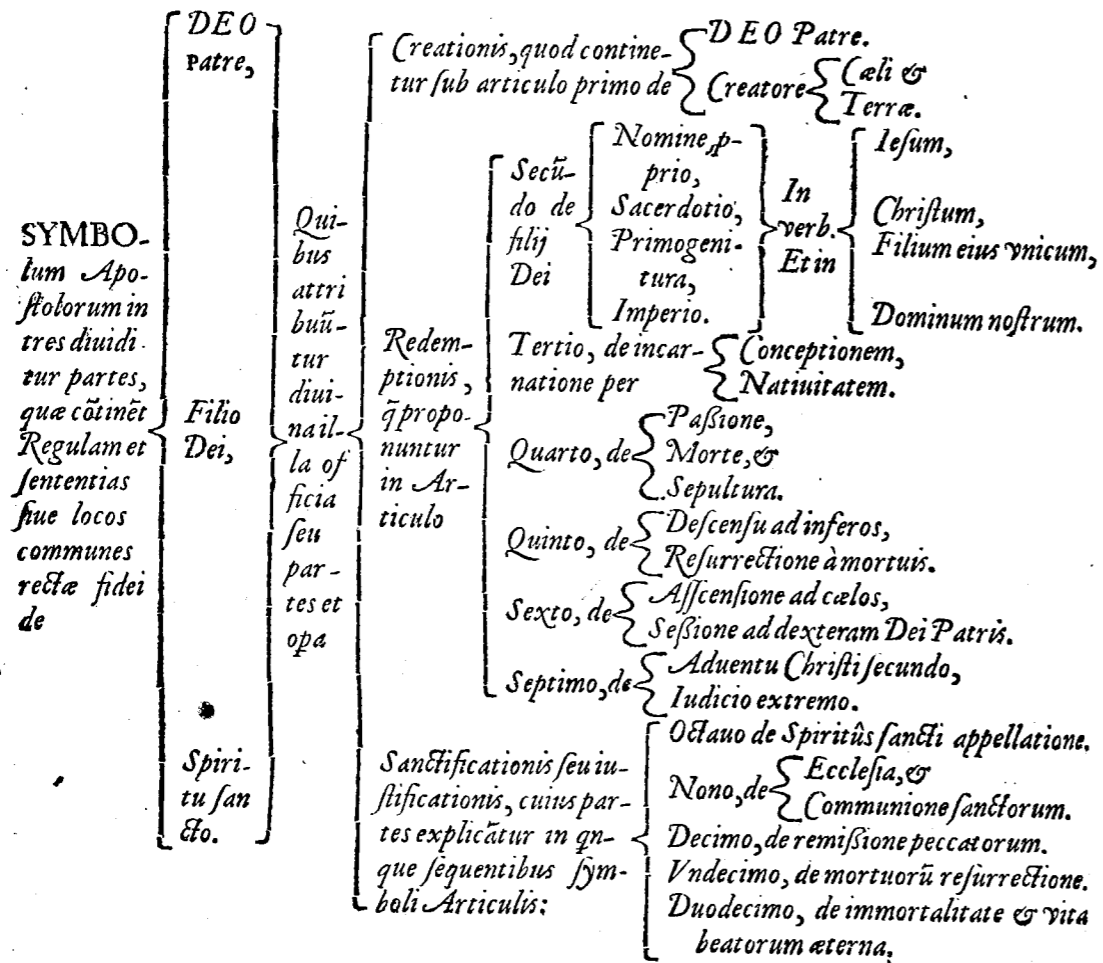 SYMBO-
lum Apo-
ſtolorum in
tres diuidi-
tur partes,
quæ cōtinēt
Regulam et
ſententias
ſiue locos
communes
rectæ fidei
de
DEO
patre,
Filio
Dei,
Spiri-
tu ſan
cto.
Qui-
bus
attri
buū-
tur
diui-
na il-
la of
ficia
ſeu
par-
tes et
opa
Creationis, quod contine-
tur ſub articulo primo de
DEO Patre.
Creatore
Cæli &
Terræ.
Redem-
ptionis,
q̄ propo-
nuntur
in Ar-
ticulo
Secū-
do de
filij
Dei
Nomine, p-
prio,
Sacerdotio,
Primogeni-
tura,
Imperio.
In
verb.
Et in
Ieſum,
Chriſtum,
Filium eius vnicum,
Dominum noſtrum.
Tertio, de incar-
natione per
Conceptionem,
Natiuitatem.
Quarto, de
Paßione,
Morte, &
Sepultura.
Quinto, de
Deſcenſu ad inferos,
Reſurrectione à mortuis.
Sexto, de
Aſſcenſione ad cælos,
Seßione ad dexteram Dei Patris.
Septimo, de
Aduentu Chriſti ſecundo,
Iudicio extremo.
Sanctificationis ſeu iu-
ſtificationis, cuius par-
tes explicātur in qn-
que ſequentibus ſym-
boli Articulis:
Octauo de Spiritûs ſancti appellatione.
Nono, de
Eccleſia, &
Communione ſanctorum.
Decimo, de remißione peccatorum.
Vndecimo, de mortuorū reſurrectione.
Duodecimo, de immortalitate & vita
beatorum æterna,